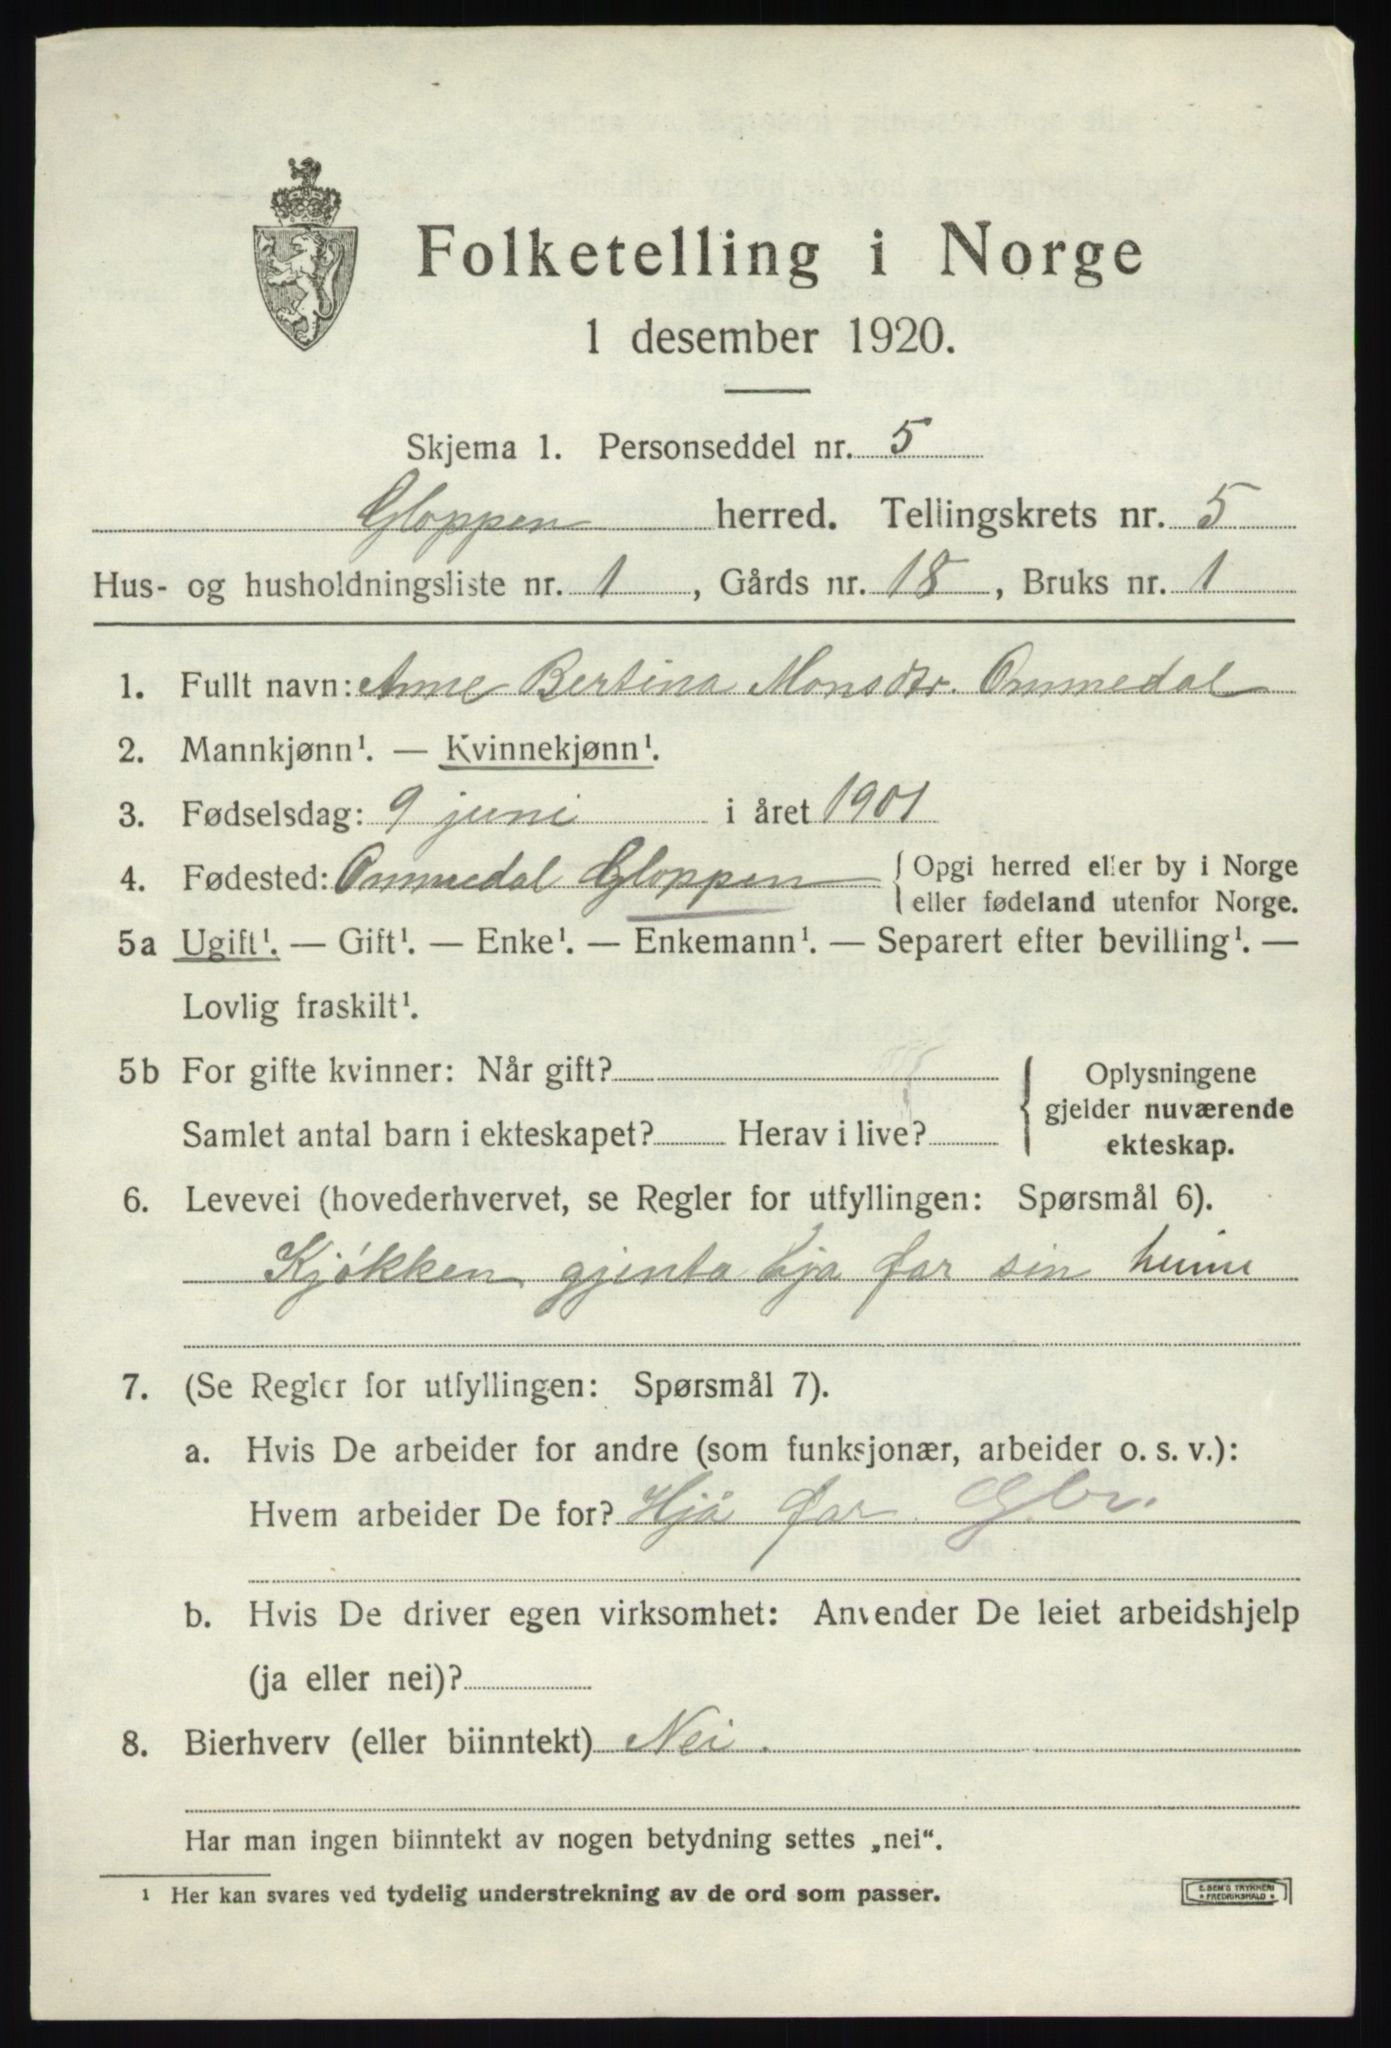 Folketelling i Norge
1 desember 1920.
Skjema 1. Personseddel nr. 5
Gloppen herred. Tellingskrets nr. 5
Hus- og husholdningsliste nr. 1, Gårds nr. 18, Bruks nr. 1
1. Fullt navn: Anne Bertina Monsdtr. Ommedal
2. Mannkjønn¹. — Kvinnekjønn¹.
3. Fødselsdag: 9 juni i året 1901
4. Fødested: Ommedal Gloppen { Opgi herred eller by i Norge
eller fødeland utenfor Norge.
5a Ugift¹. — Gift¹. — Enke¹. — Enkemann¹. — Separert efter bevilling¹. —
Lovlig fraskilt¹.
5b For gifte kvinner: Når gift?
Samlet antal barn i ekteskapet? Herav i live?
{ Oplysningene
gjelder nuværende
ekteskap.
6. Levevei (hovederhvervet, se Regler for utfyllingen: Spørsmål 6).
Kjøkken gjenta hja far sin heime
7. (Se Regler for utfyllingen: Spørsmål 7).
a. Hvis De arbeider for andre (som funksjonær, arbeider o. s. v.):
Hvem arbeider De for? Hjå far. Gbr.
b. Hvis De driver egen virksomhet: Anvender De leiet arbeidshjelp
(ja eller nei)?
8. Bierhverv (eller biinntekt) Nei.
Har man ingen biinntekt av nogen betydning settes „nei“.
¹ Her kan svares ved tydelig understrekning av de ord som passer.
E. SEM'S TRYKKERI
* FREDRIKSHALD *